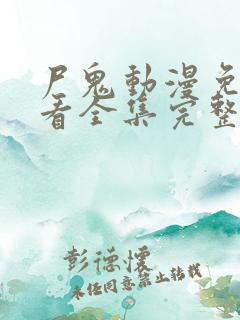 尸鬼動漫免
看全集完整
彭德懷
未经同意禁止转载